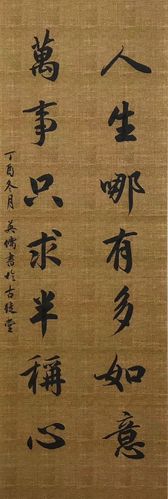 人生哪有多如意
萬事只求半稱心
丁酉冬月英儒書於古徒堂